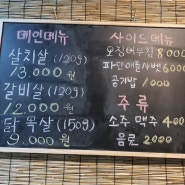 메인메뉴
살치살 (120g)
13.000원
갈비살 (120g)
12.000원
닭목살 (150g)
9.000원
사이드메뉴
8000
6000
공기밥 1000
주류
소주 맥주 4000
음료 2000